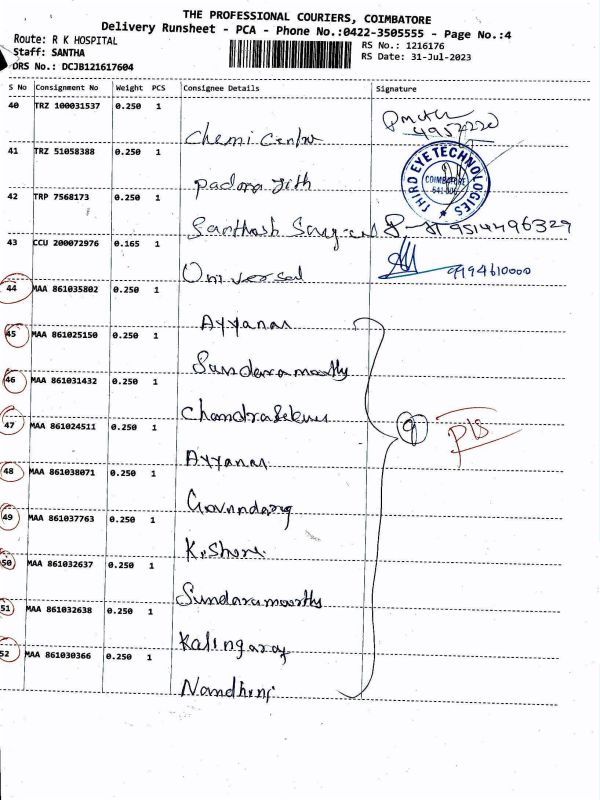 THE PROFESSIONAL COURIERS, COIMBATORE
Delivery Runsheet - PCA - Phone No.:0422-3505555 - Page No.:4
Route: R K HOSPITAL
Staff: SANTHA
DRS No.: DCJB121617604
RS No.: 1216176
RS Date: 31-Jul-2023
S No Consignment No Weight PCS Consignee Details Signature
40 TRZ 100031537 0.250 1
Chemi Centre
41 TRZ 51058388 0.250 1
THIRD EYE TECHNOLOGIES
COIMBATORE
42 TRP 7568173 0.250 1
Santhosh 9514496329
43 CCU 200072976 0.165 1
Universal 9994610000
44 MAA 861035802 0.250 1
Ayyanar
45 MAA 861025150 0.250 1
Sundaramoorthy
46 MAA 861031432 0.250 1
47 MAA 861024511 0.250 1
Ayyanar
9
Pls
48 MAA 861038071 0.250 1
49 MAA 861037763 0.250 1
Kishore
50 MAA 861032637 0.250 1
Sundaramoorthy
51 MAA 861032638 0.250 1
Kalingaraj
52 MAA 861030366 0.250 1
Nandhini